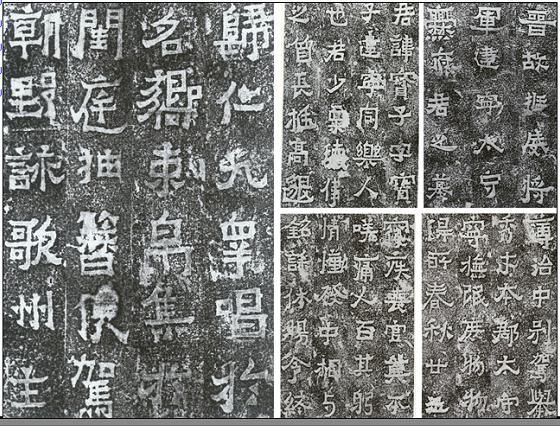 晉故振威將
軍建寧太守
爨府君之墓
君諱寶子字寶
子建寧同樂人
也君少稟瓌偉
之質長挺高邈
歸仁九皋唱於
名嚮束帛集於
閨庭抽簪俟駕
朝野詠歌州主
簿治中別駕舉
秀才本郡太守
寧撫氓庶物物
得所春秋廿五
寢疾喪官莫不
嗟痛人百其躬
情慟發中相與
銘誄休揚令終